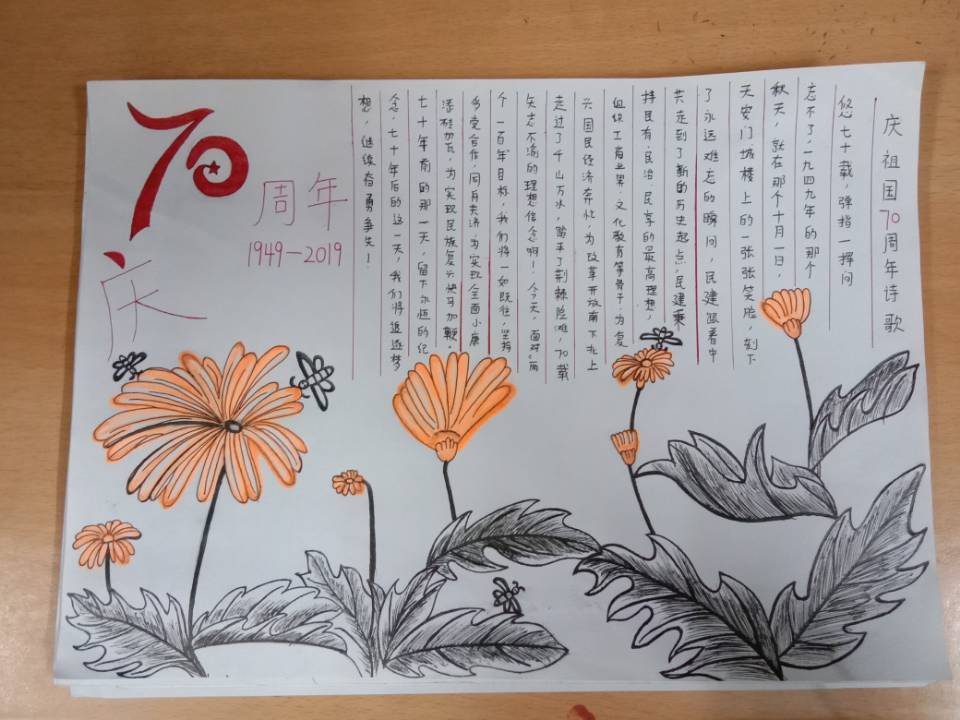 庆祖国70周年诗歌
悠七十载，弹指一挥间
忘不了，一九四九年的那个
秋天，就在那个十月一日，
天安门城楼上的一张张笑脸，刻下
了永远难忘的瞬间，民建跟着中
共走到了新的历史起点，民建秉
持民有、民治、民享的最高理想，
组织工商业界、文化教育等骨干，为复
兴国民经济奔忙，为改革开放南下北上
走过了千山万水，踏平了荆棘险滩，70载
矢志不渝的理想信念啊！今天，面对"两
个一百年"目标，我们将一如既往，坚持
多党合作，同舟共济，为实现全面小康
添砖加瓦，为实现民族复兴快马加鞭。
七十年前的那一天，留下永恒的纪
念，七十年后的这一天，我们将追逐梦
想，继续奋勇争先！
70
周年
1949—2019
庆